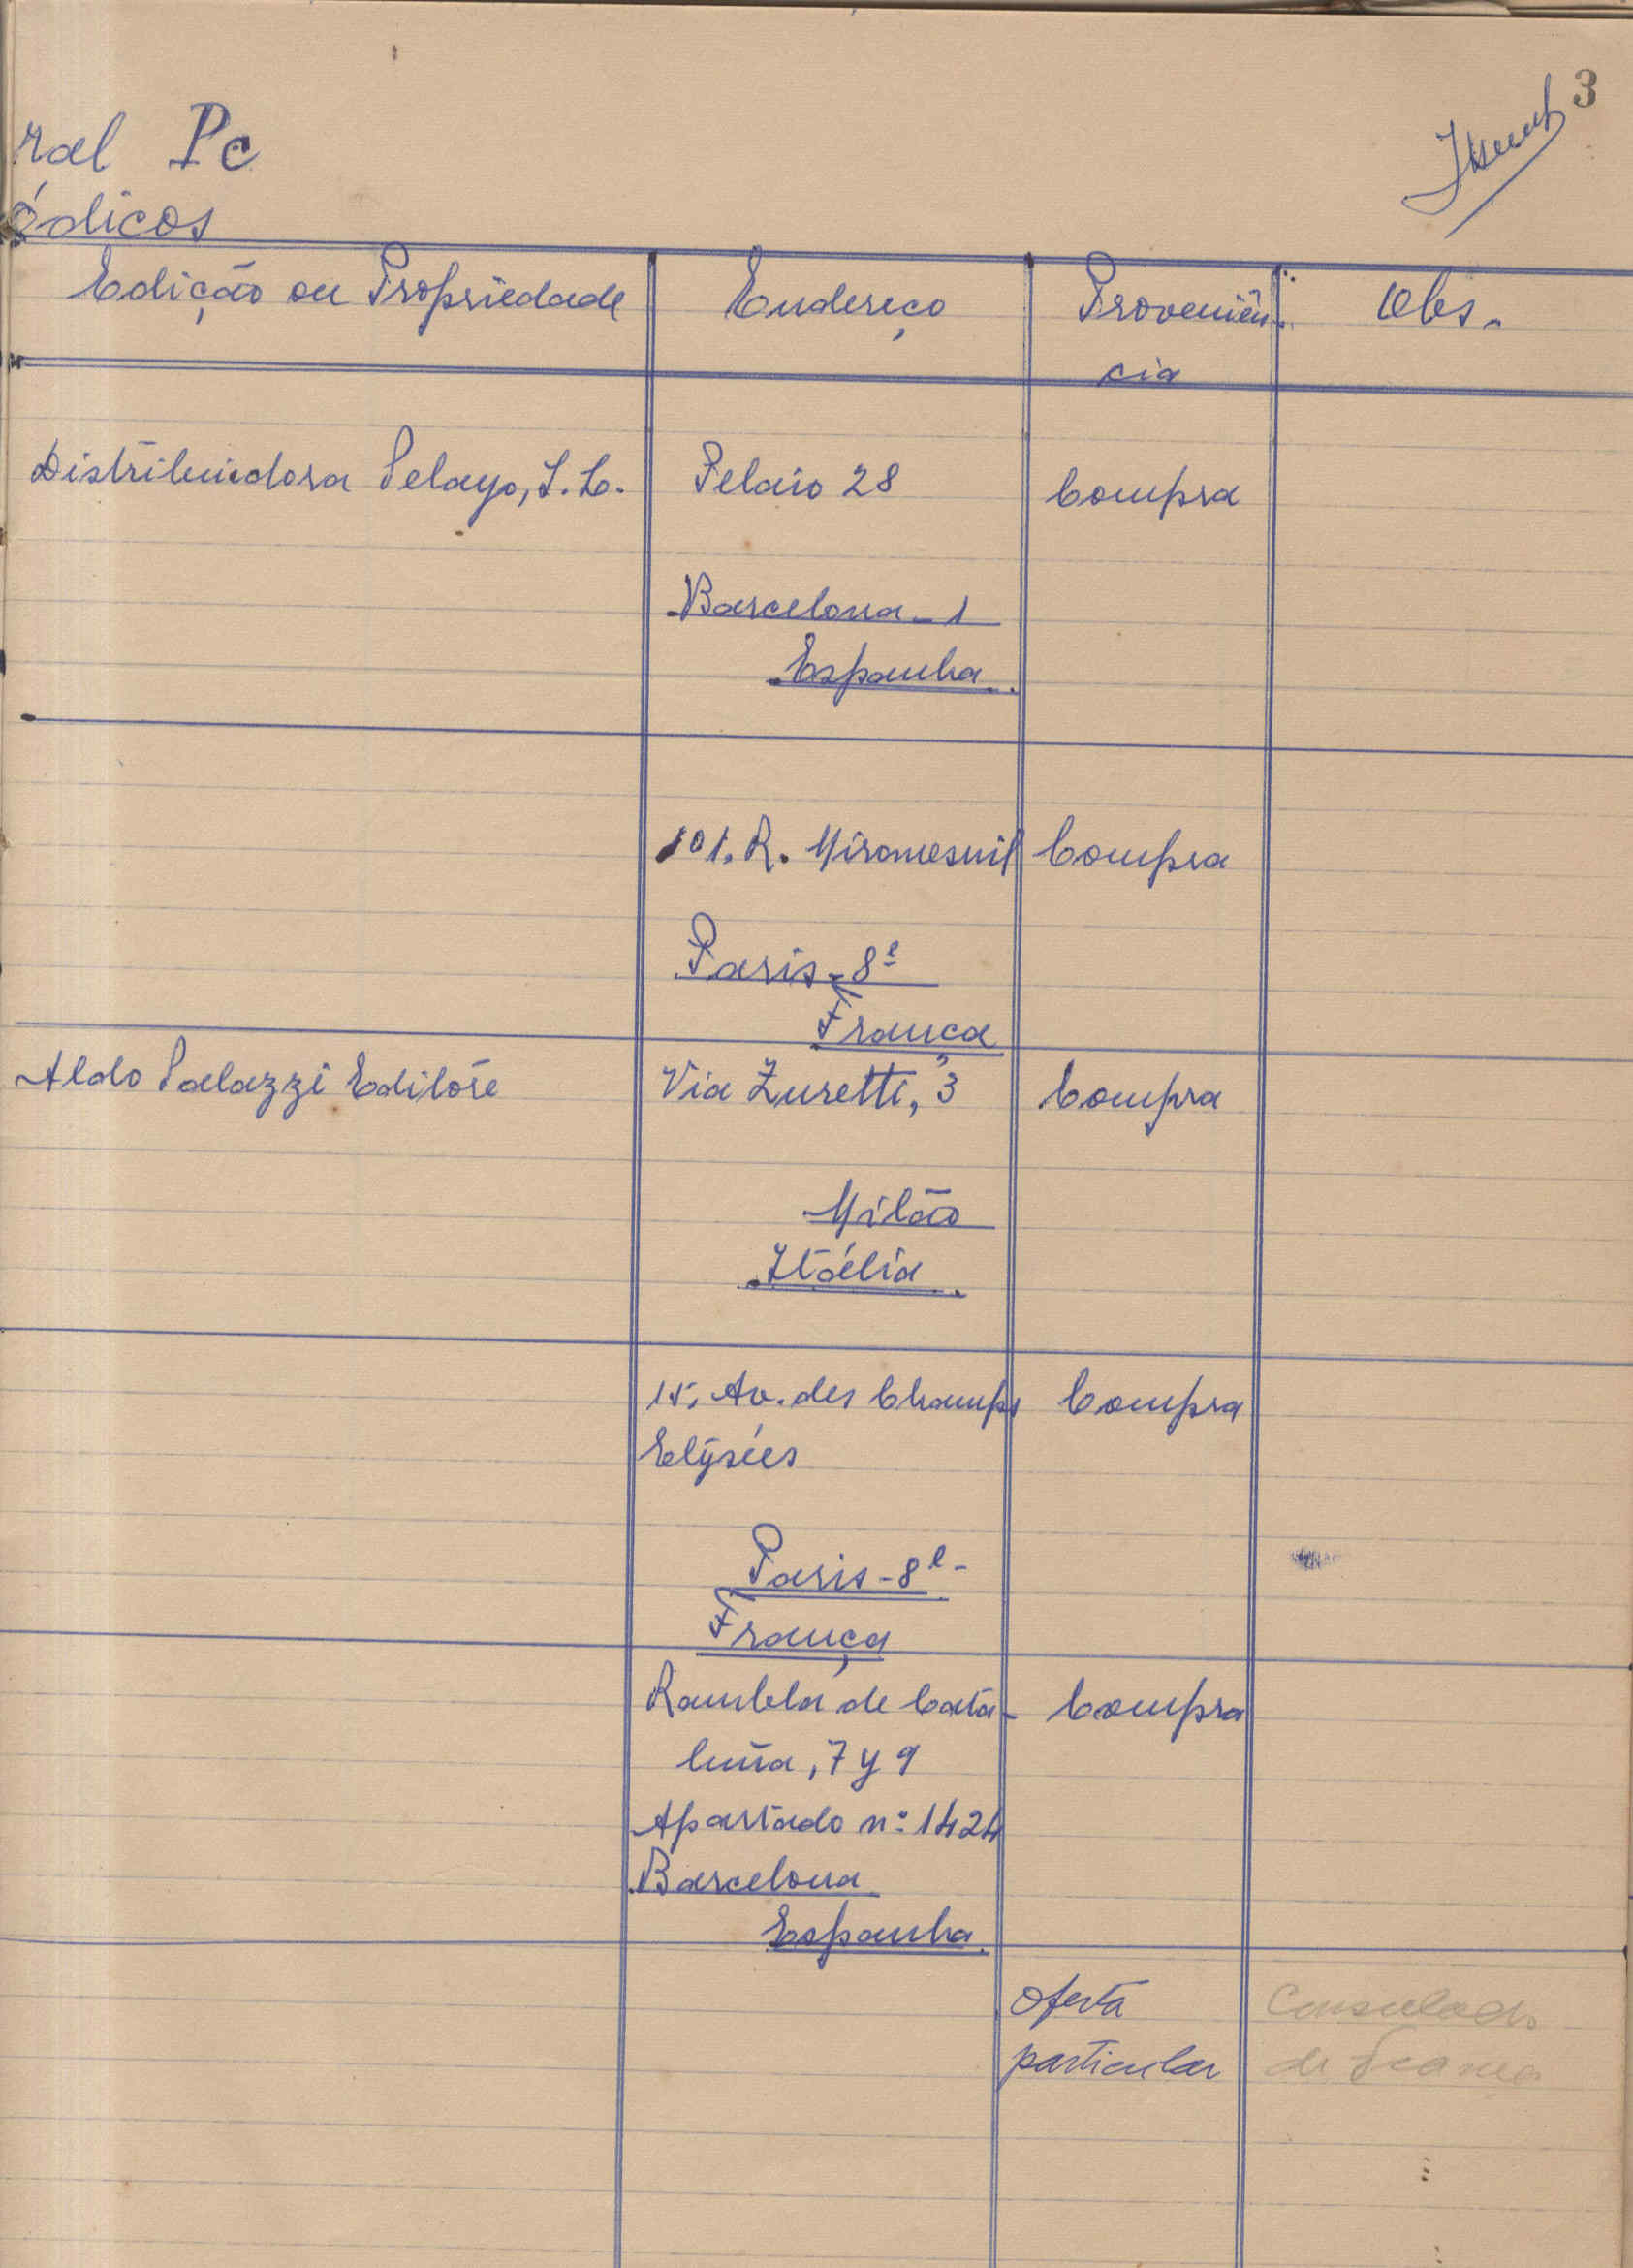 3
ral Pc
ódicos
Edição ou Propriedade Endereço Proveniên- Obs.
cia
Distribuidora Pelayo, S.L. Pelaio 28 Compra
Barcelona-1
Espanha.
101. R. Miromesnil Compra
Paris-8e
França
Aldo Palazzi Editore Via Zuretti, 3 Compra
Milão
Itália.
15, Av. des Champs Compra
Elysées
Paris-8e-
França
Rambla de Cata- Compra
luña, 7 y 9
Apartado nº 1424
Barcelona
Espanha.
Oferta Consulado
particular de França